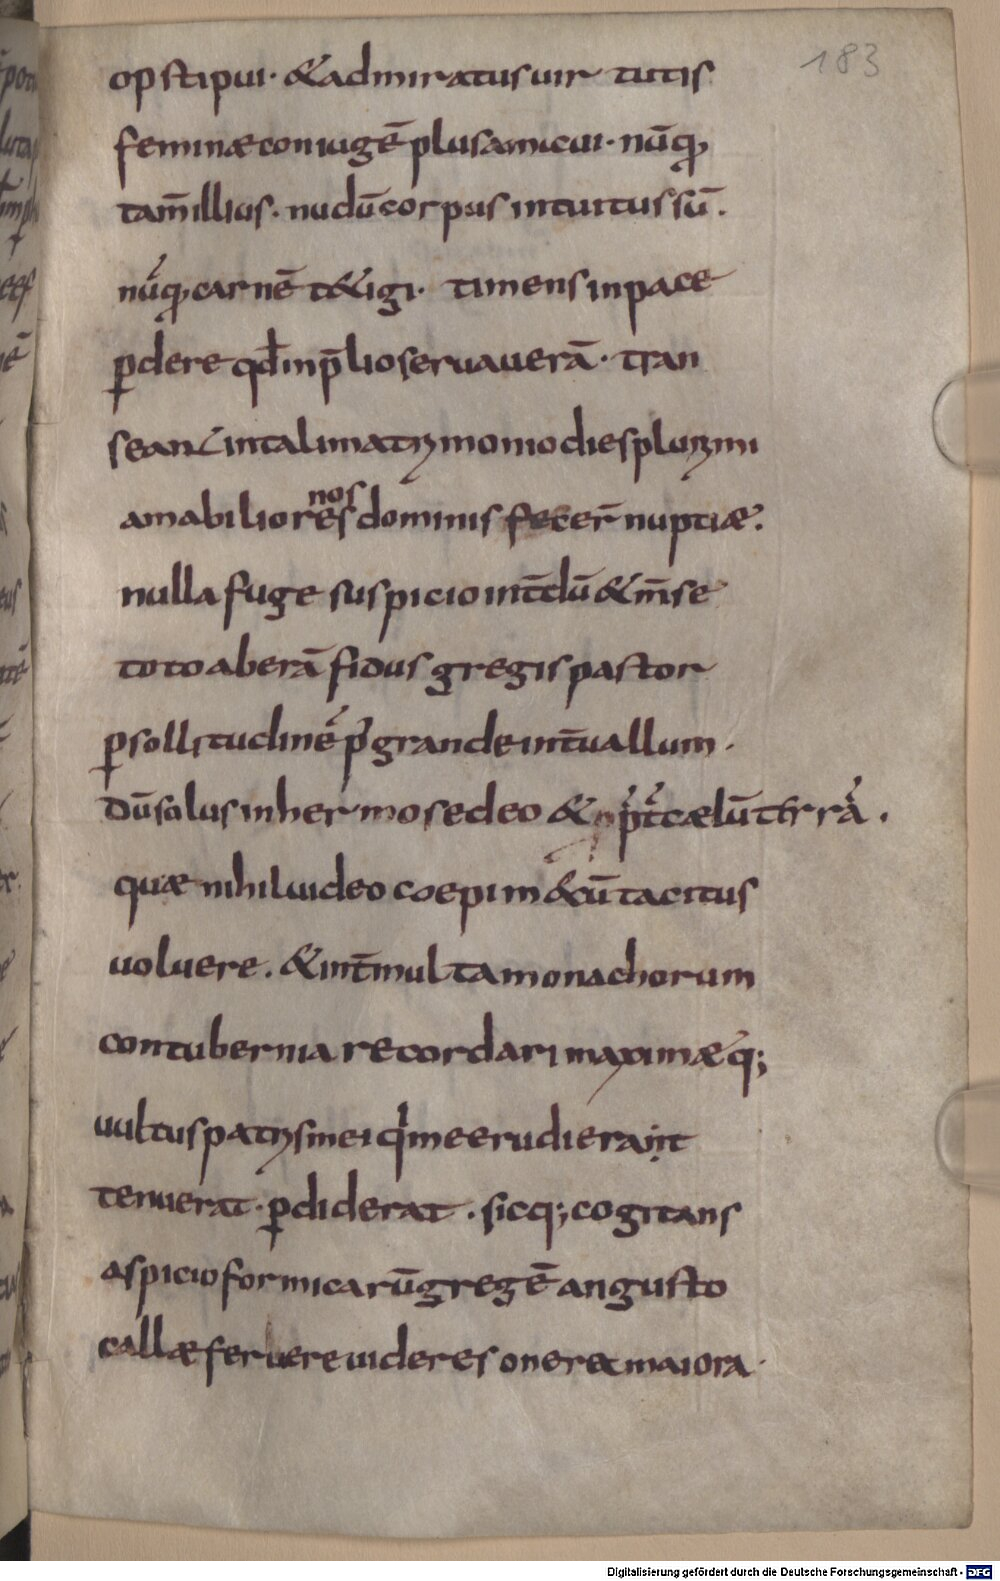 183
opstipui· & admiratus uir tutis
feminæ coniugē plus amicui· nūq;
tam̄ illius· nudū corpus intuitus sū.
nūq; carnē t&igi· timens in pace
ꝑdere qđ in p̄lio seruauerā· tran
seant in tali matrimonio dies plurimi
amabiliores nos dominis fecer̄ nuptiæ.
nulla fugę suspicio int̄dū & m̄se
toto aberā fidus gregis pastor
ꝑ sollitudinē p̄ grande int̄uallum·
dū solus in hermo sedeo & p̄t cælū t̄rrā.
quæ nihil uideo coepi m&cū tacitus
uoluere. & int̄ multa monachorum
contubernia recordari maximæq;
uultus patris mei q̇ me erudierant
tenuerat· ꝑdiderat· sicq; cogitans
aspicio formicarū gregē angusto
callæ feruere uideres onera maiora·
Digitalisierung gefördert durch die Deutsche Forschungsgemeinschaft - DFG